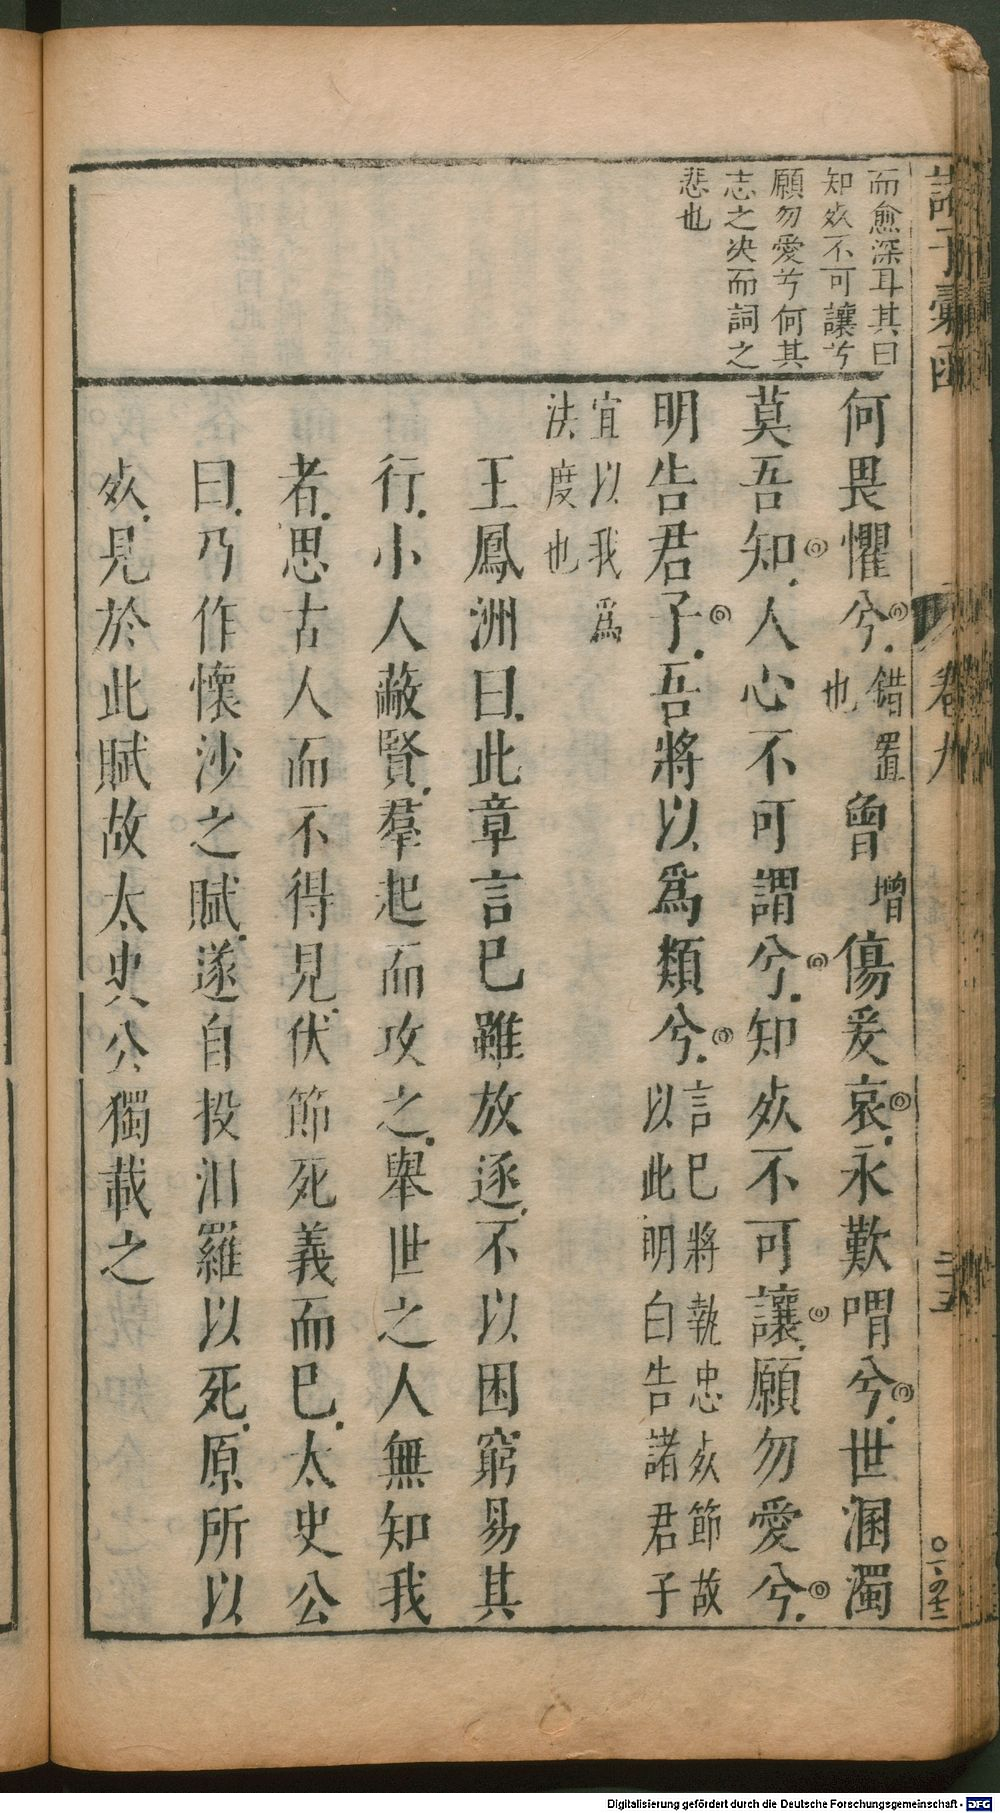 而愈深耳其曰
知死不可讓兮
願勿愛兮何其
志之决而詞之
悲也
諸子彙函
卷九
二十五
何畏懼兮錯置也曾增傷爰哀永歎喟兮世溷濁
莫吾知人心不可謂兮知死不可讓願勿愛兮
明告君子吾將以爲類兮言已將執忠死節故以此明白告諸君子
宜以我爲法度也
王鳳洲曰此章言已雖放逐不以困窮易其
行小人蔽賢羣起而攻之舉世之人無知我
者思古人而不得見伏節死義而已太史公
曰乃作懷沙之賦遂自投汨羅以死原所以
死見於此賦故太史公獨載之
Digitalisierung gefördert durch die Deutsche Forschungsgemeinschaft - DFG